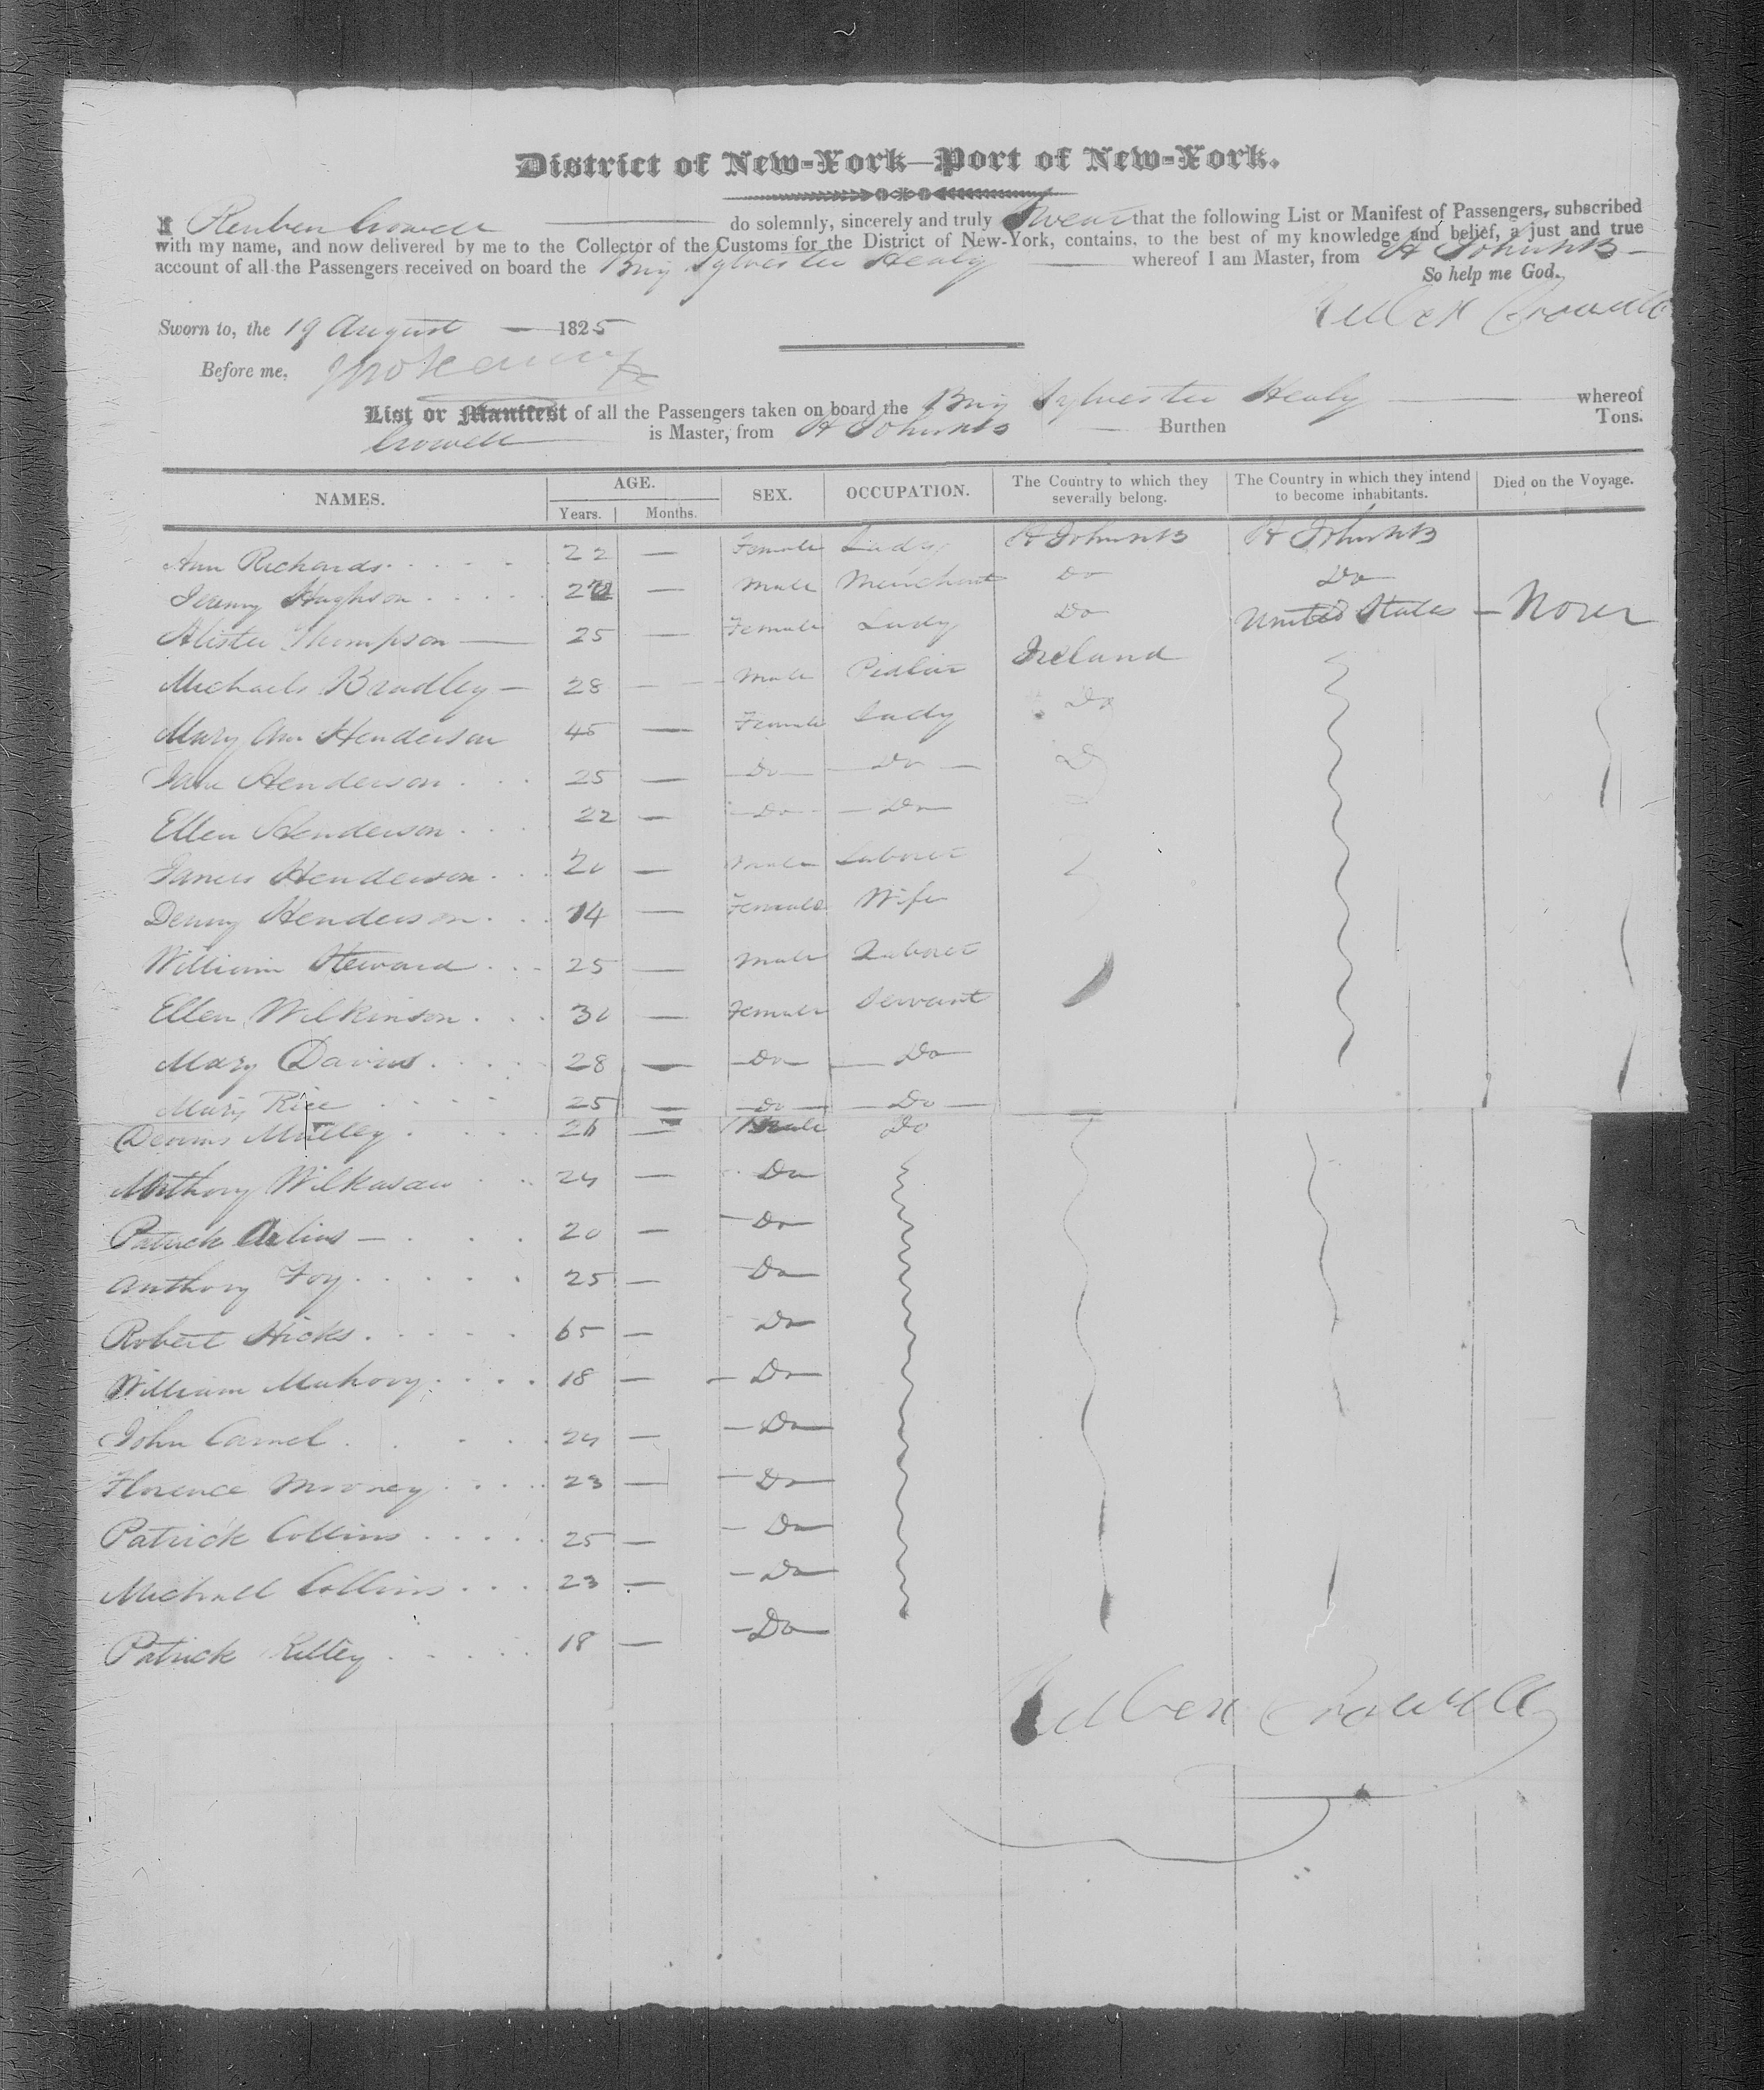 District of New-York—Port of New-York.
I Reuben Crowell do solemnly, sincerely and truly Swear that the following List or Manifest of Passengers, subscribed
with my name, and now delivered by me to the Collector of the Customs for the District of New-York, contains, to the best of my knowledge and belief, a just and true
account of all the Passengers received on board the Brig Sylvester Healy whereof I am Master, from St Johns NB
So help me God.
Reuben Crowell
Sworn to, the 19 August 1825
Before me,
List or Manifest of all the Passengers taken on board the Brig Sylvester Healy whereof
Crowell is Master, from St Johns NB Burthen Tons.
NAMES. AGE. SEX. OCCUPATION. The Country to which they severally belong. The Country in which they intend to become inhabitants. Died on the Voyage.
Years. Months.
Ann Richards 22 — Female Lady St Johns NB St Johns NB
Hughson — Male Merchant Do Do
Thompson — 25 — Female Lady Do United States — None
Michael Bradley — 28 — Male Pedlar Ireland
Mary Ann Henderson 45 — Female Lady Do
Jane Henderson 25 — Do Do Do
Ellen Henderson 22 — Do Do
James Henderson 20 — Male Laborer
Denny Henderson 14 — Female Wife
William Steward 25 — Male Laborer
Ellen Wilkinson 30 — Female Servant
Mary Davins 28 — Do Do
Mary Rice 25 — Do Do
Dennis Mulley 26 — Male Do
Anthony 24 — Do
Patrick — 20 — Do
Anthony Foy 25 — Do
Robert Hicks 65 — Do
William Mahony 18 — Do
John Carnel 24 — Do
Florence Mooney 23 — Do
Patrick Collins 25 — Do
Michael Collins 23 — Do
Patrick Kelley 18 — Do
Reuben Crowell